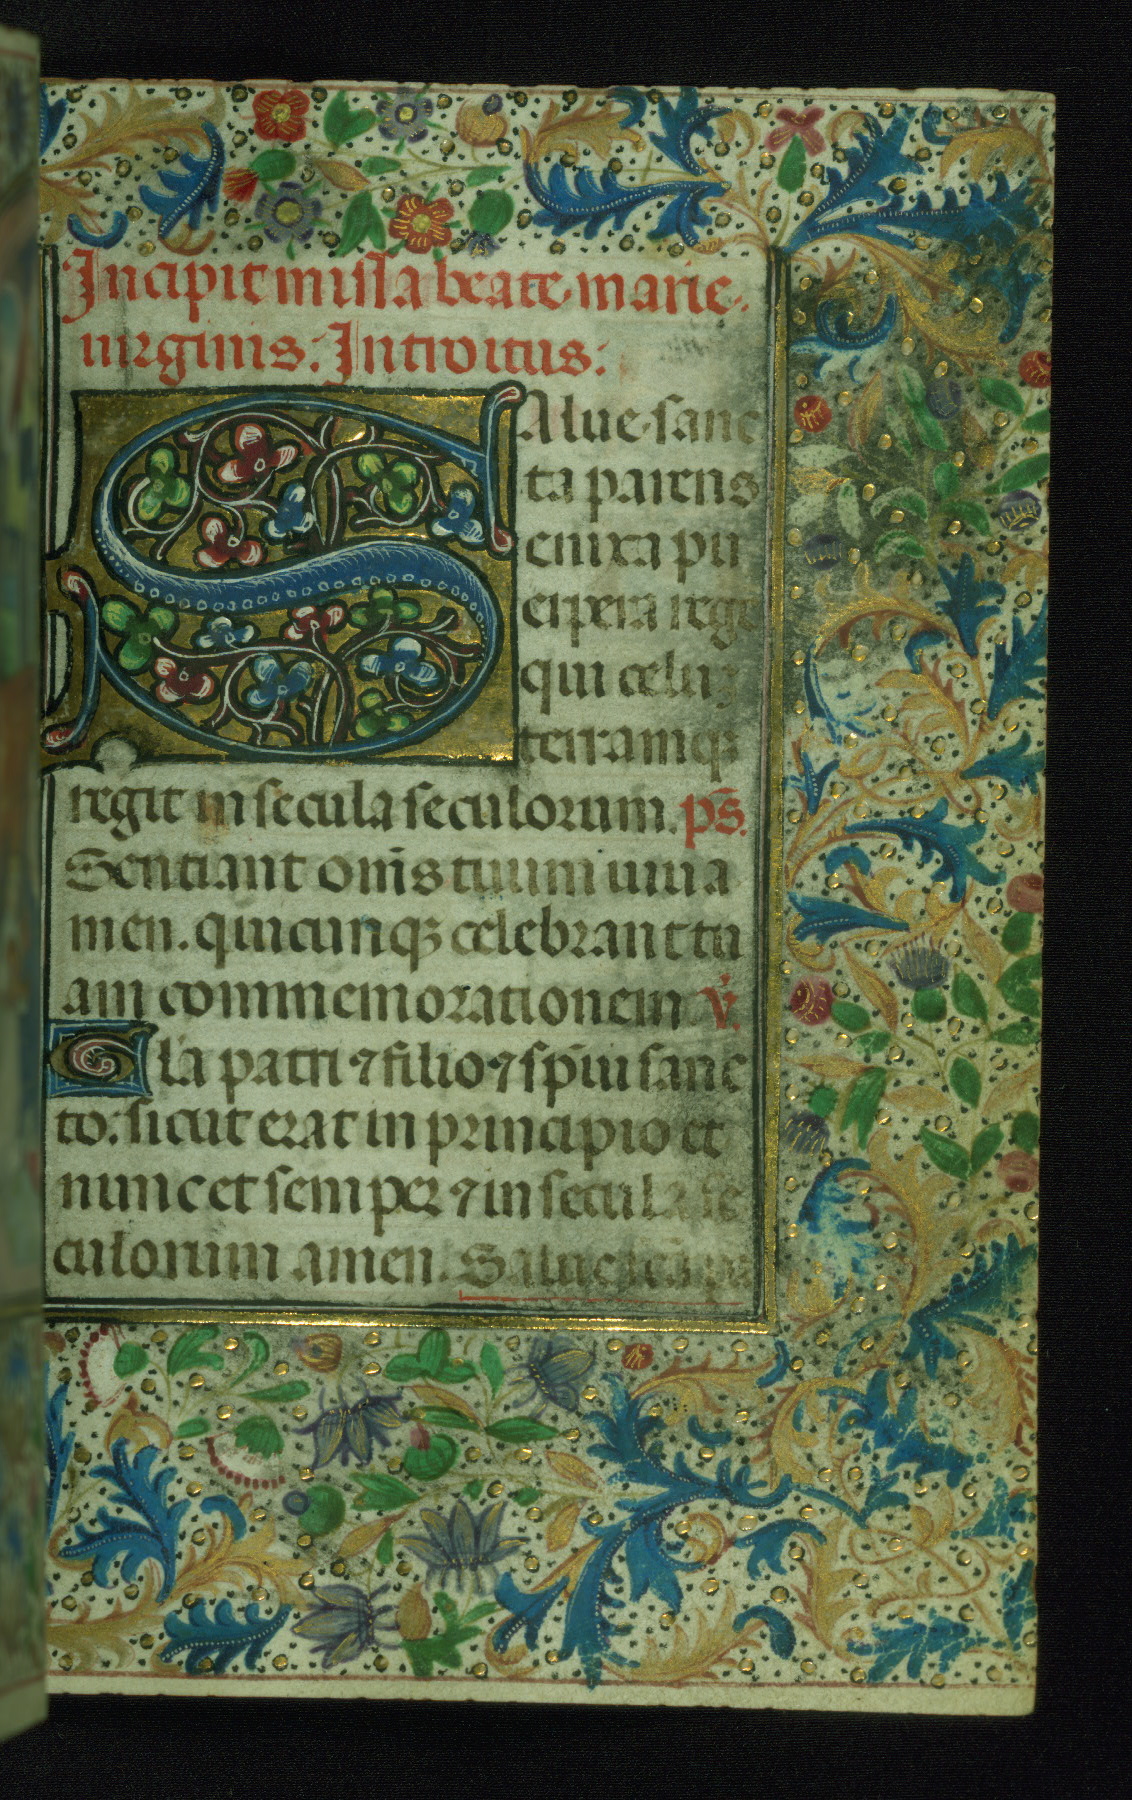 Incipit missa beate marie
uirginis: Introitus:
SAlue sanc
ta parens
enixa pu
erpera rege
qui celuz
terramqz
regit in secula seculorum. ps̄.
Sentiant om̄s tuum iuua
men. quicunqz celebrant tu
am commemorationem v̇.
Gl̄a patri ⁊ filio ⁊ sp̄iui sanc
to: sicut erat in principio et
nunc et semper ⁊ in secula se
culorum amen. Salue